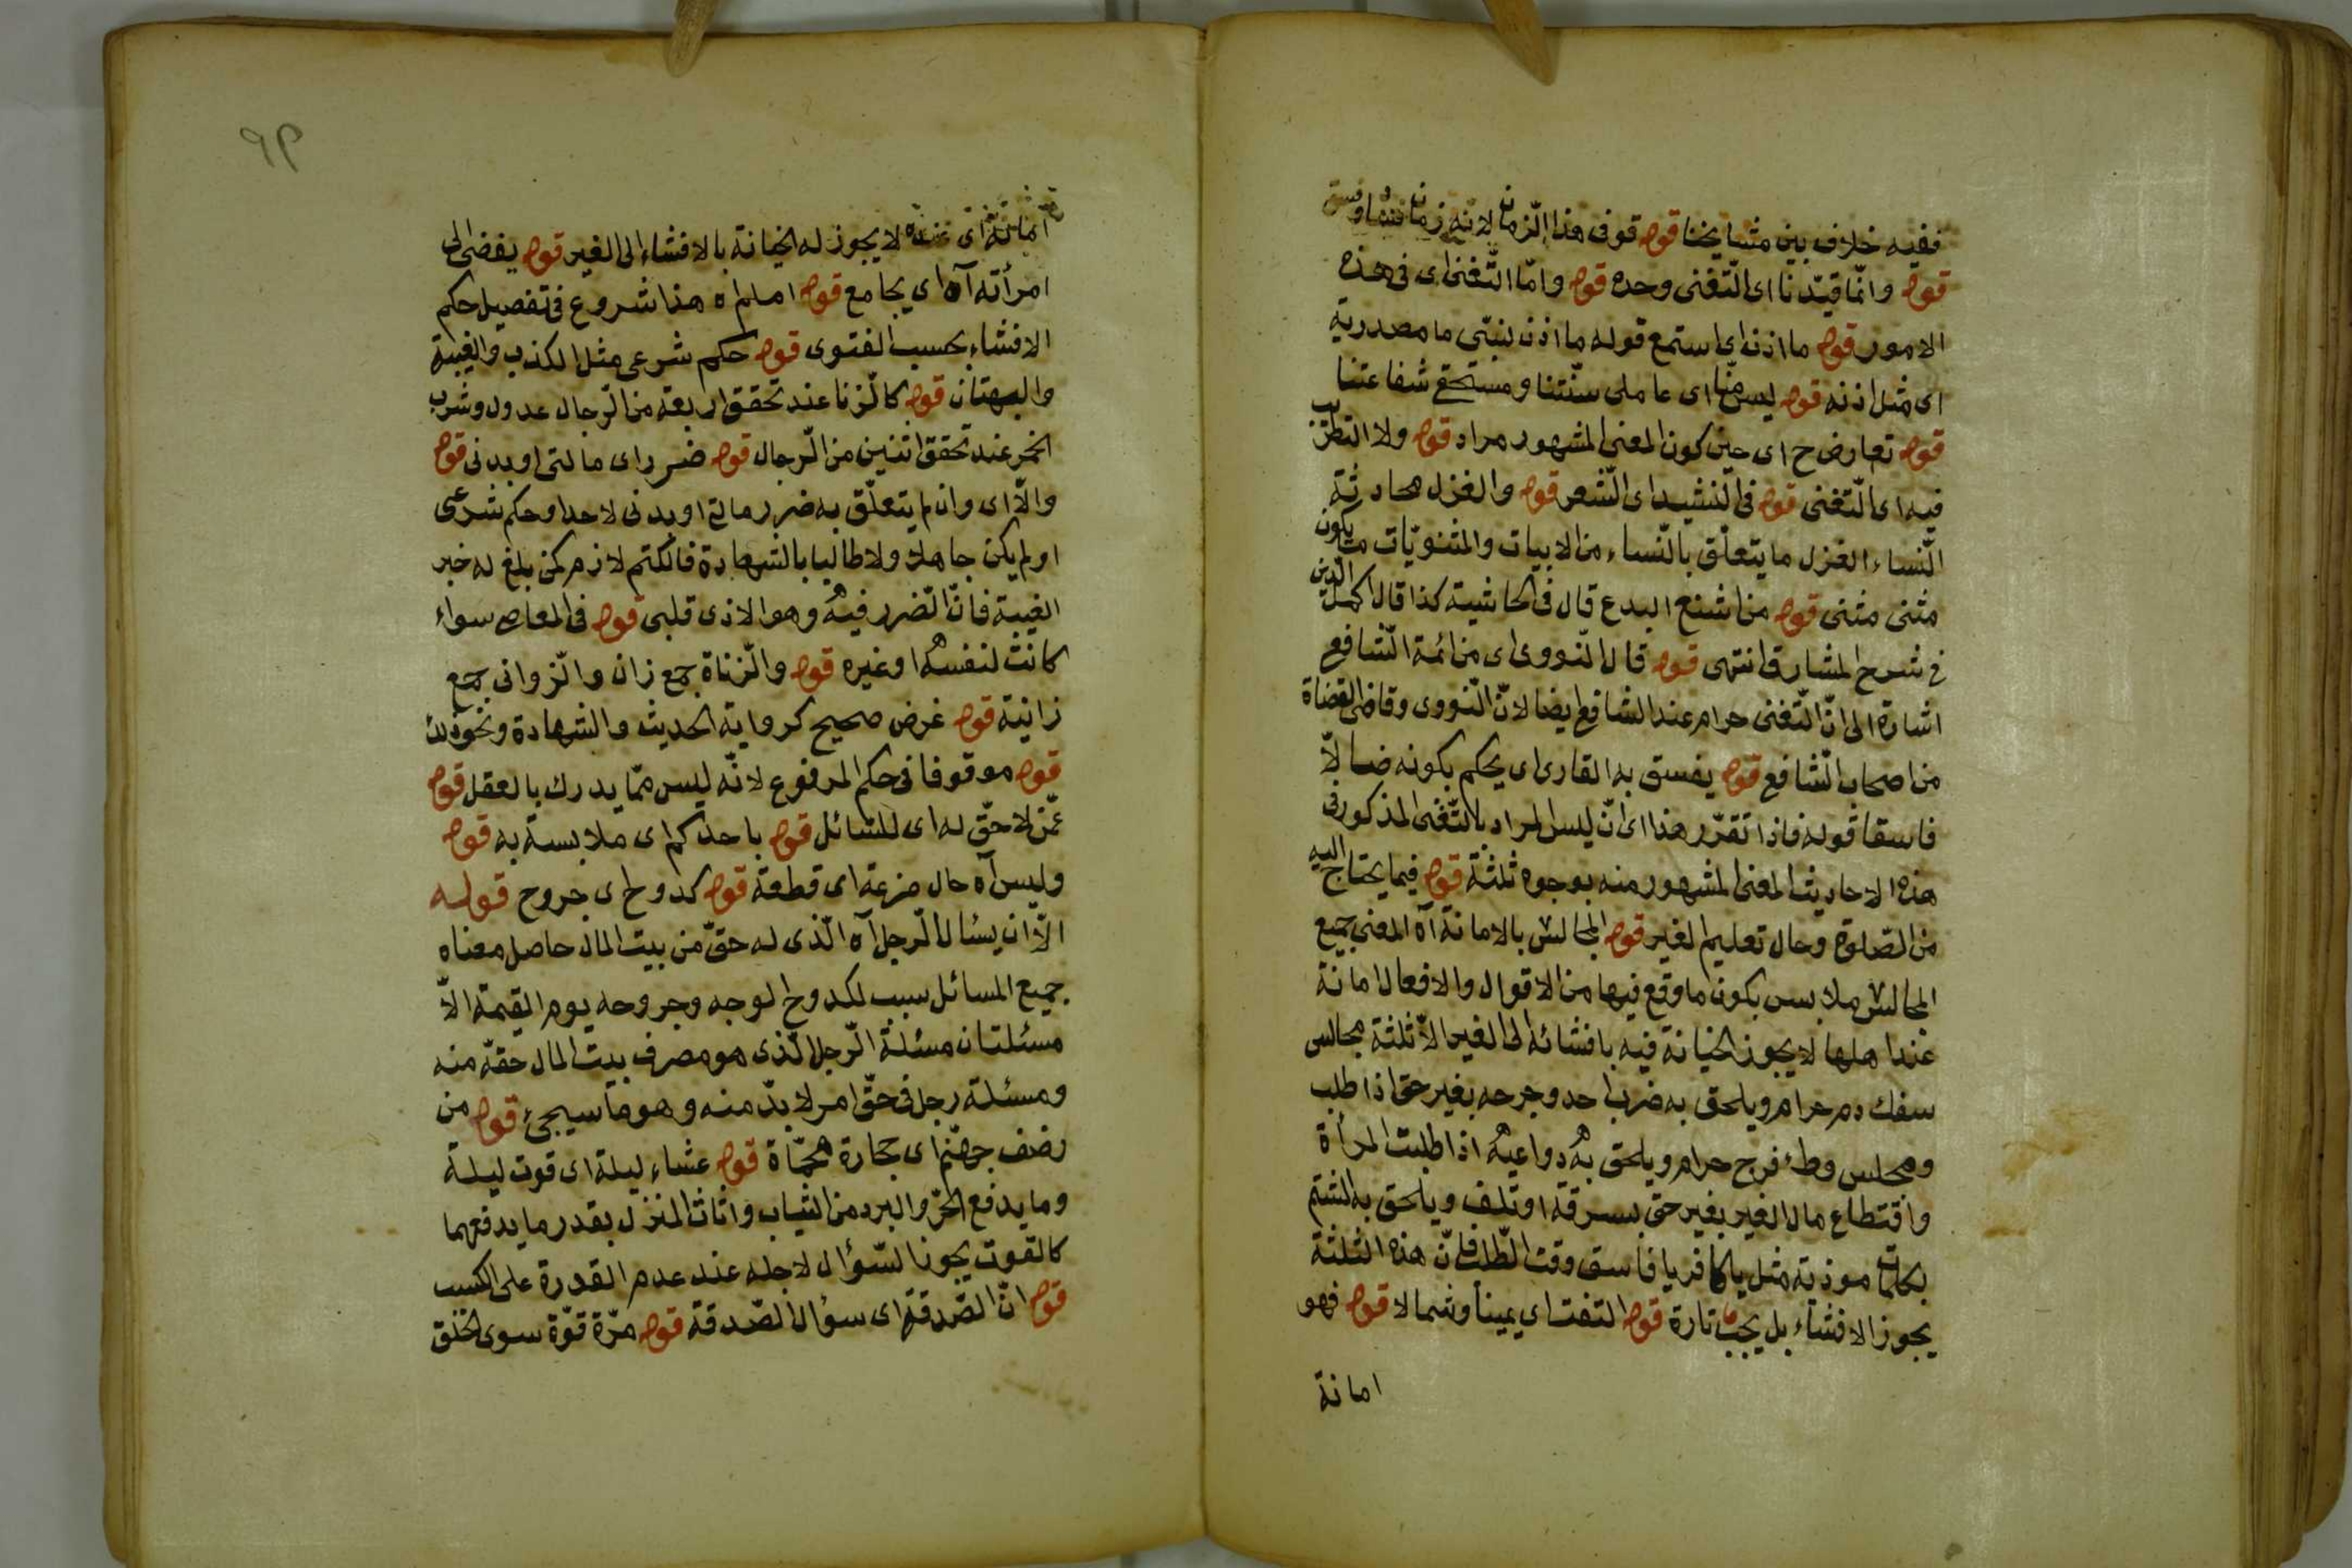 ففيه خلاف بين مشايخنا قوله قوفى هذا الزمان لانه زمان
قوله وانّما قيّدنا اى التّغنى وحده قوله وامّا التّغنى اى فى هذه
الامور قوله ما اذن اى استمع قوله ما اذن لنبىّ ما مصدرية
اى مثل اذنه قوله ليس منّا اى عاملى سنّتنا ومستحق شفاعتنا
قوله تعارض ح اى حين كون المعنى المشهور مراد قوله ولا التطرب
فيه اى التّغنى قوله فى النّشيد اى الشّعر قوله والغزل محادثة
النّساء الغزل ما يتعلّق بالنّساء من الابيات والمثنويّات ما يكون
مثنى مثنى قوله من اشنع البدع قال فى الحاشية كذا قال اكمل الدين
فى شرح المشارق انتهى قوله قال النّووى اى من ائمة الشّافعى
اشارة الى انّ التّغنى حرام عند الشافعى ايضا لانّ النّووى وقاضى القضاة
من اصحاب الشّافعى قوله يفسق به القارى اى يحكم بكونه ضالّا
فاسقا قوله فاذا تقرّر هذا اى انّ ليس المراد بالتّغنى المذكور فى
هذه الاحاديث المعنى المشهور منه بوجوه ثلثة قوله فيما يحتاج اليه
من الصّلوة وحال تعليم الغير قوله المجالس بالامانة آه المعنى جميع
المجالس ملابس بكون ما وقع فيها من الاقوال والافعال امانة
عند اهلها لا يجوز الخيانة فيه بافشائه الى الغير الاّ ثلثة مجالس
سفك دم حرام ويلحق به ضرب احد وجرحه بغير حق اذا طلب
ومجلس وطئ فرج حرام ويلحق به دواعيه اذا طلبت المرأة
واقتطاع مال الغير بغير حق بسرقة او تلف ويلحق به الشتم
بكلمات موذية مثل يا كافر يا فاسق وقت الطّلب فانّ هذه الثلثة
يجوز الافشاء بل يجب تارة قوله التفت اى يمينا وشمالا قوله فهو
امانة
٩٩
امانة اى عنده لا يجوز له الخيانة بالافشاء الى الغير قوله يفضى الى
امرأته آه اى يجامع قوله اه هذا شروع فى تفصيل حكم
الافشاء بحسب الفتوى قوله حكم شرعى مثل الكذب والغيبة
والبهتان قوله كالزنا عند تحقق اربعة من الرّجال عدول وشرب
الخمر عند تحقق اثنين من الرّجال قوله ضرر اى مالى او بدنى قوله
والاّ اى وان لم يتعلّق به ضرر مالى او بدنى لاحد او حكم شرعى
او لم يكن جاهلا ولا طالبا بالشهادة فالكتم لازم كمن بلغ له خبر
الغيبة فانّ الضرر فيه وهو الاذى قلبى قوله فى المعاصى سواء
كانت لنفسه او غيره قوله والزّناة جمع زان والزّوانى جمع
زانية قوله غرض صحيح كرواية الحديث والشهادة ونحو ذلك
قوله موقوفا فى حكم المرفوع لانّه ليس ممّا يدرك بالعقل قوله
عمّن لا حقّ له اى للسّائل قوله باحدكم اى ملابسة به قوله
وليس آه حال مزعة اى قطعة قوله كدوح اى جروح قوله
الاّ ان يسأل الرّجل آه الّذى له حقّ من بيت المال حاصل معناه
جميع المسائل سبب لكدوح الوجه وجروحه يوم القيمة الاّ
مسئلتان مسئلة الرّجل الّذى هو مصرف بيت المال حقّه منه
ومسئلة رجل فى حقّ امر لا بدّ منه وهو ما سيجئ قوله من
رضف جهنّم اى حجارة محمّاة قوله عشاء ليلة اى قوت ليلة
وما يدفع الحرّ والبرد من الثياب واثاث المنزل بقدر ما يدفعهما
كالقوت يجوز السّؤال لاجله عند عدم القدرة على الكسب
قوله انّ الصّدقة اى سؤال الصّدقة قوله مرّة قوّة سوى الخلق